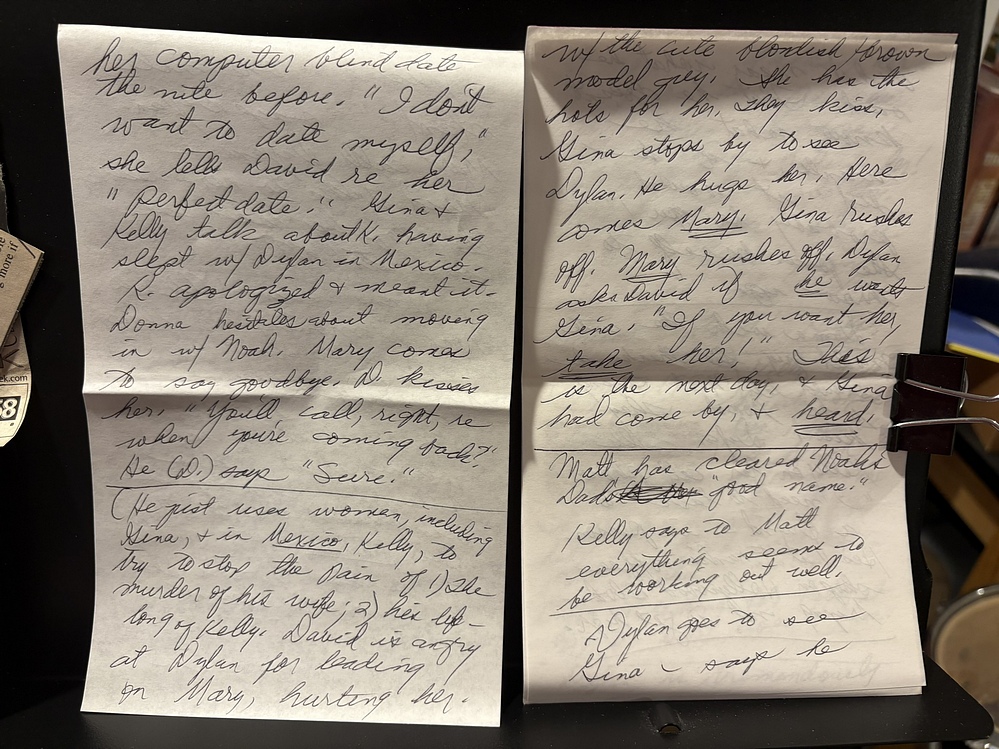 her computer blind date
the nite before. "I don't
want to date myself,"
she tells David re her
"perfect date." Gina +
Kelly talk about K. having
slept w/ Dylan in Mexico.
K. apologized + meant it.
Donna hesitates about moving
in w/ Noah. Mary comes
to say goodbye. D. kisses
her. "You'll call, right, re
when you're coming back?"
He (D.) says "Sure."
(He just uses women, including
Gina, + in Mexico, Kelly, to
try to stop the pain of 1) the
murder of his wife; 2) his
long of Kelly. David is angry
at Dylan for leading
on Mary, hurting her.
w/ the cute blondish/brown
model guy. She has the
hots for her. They kiss.
Gina stops by to see
Dylan. He hugs her. Here
comes Mary. Gina rushes
off. Mary rushes off. Dylan
asks David if he wants
Gina. "If you want her,
take her!" This
is the next day, + Gina
had come by, + heard.
Matt has cleared Noah's
Dad's "good name."
Kelly says to Matt
everything seems to
be working out well.
Dylan goes to see
Gina – says he
g more if
k.com
58